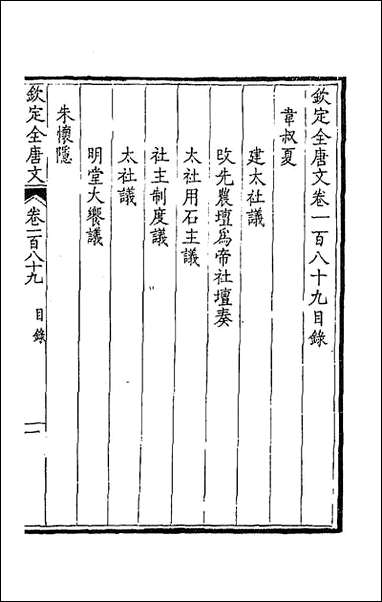 欽定全唐文卷一百八十九目錄
韋叔夏
建太社議
改先農壇爲帝社壇奏
太社用石主議
社主制度議
太社議
明堂大饗議
朱懷隱
欽定全唐文
卷一百八十九
目錄
一